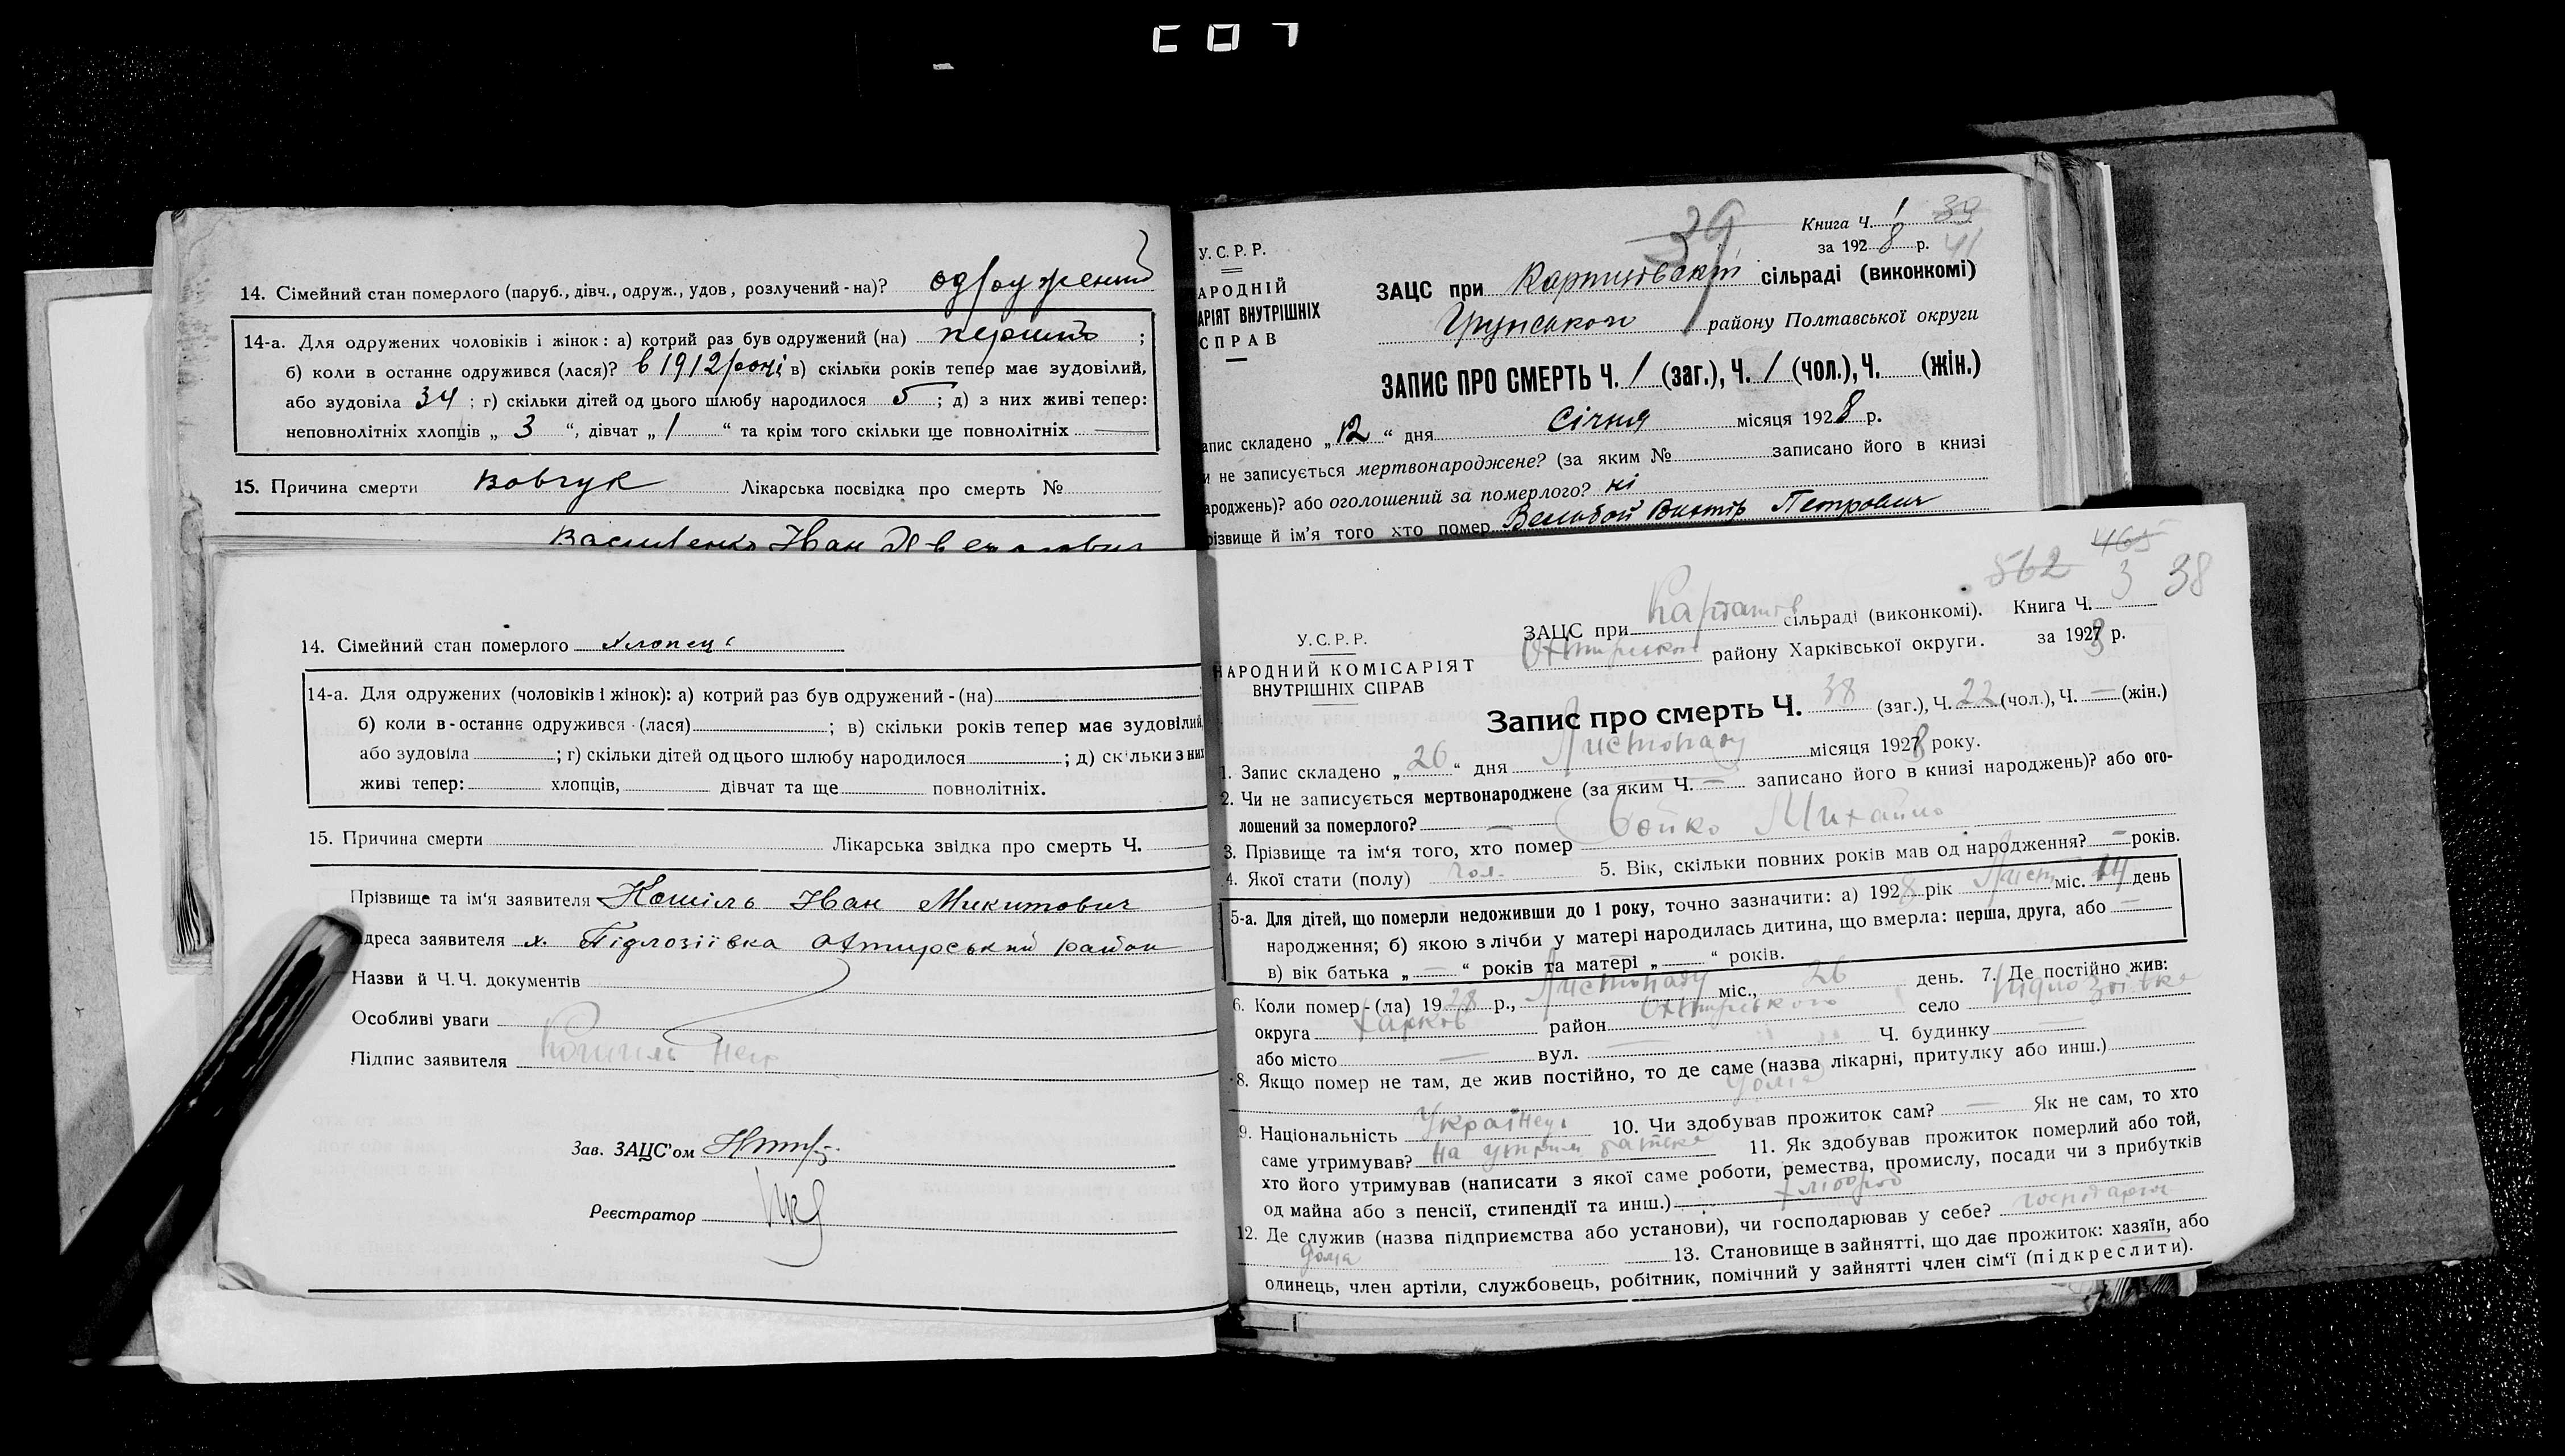 14. Сімейний стан померлого (паруб., дівч., одруж., удов, розлучений-на)? одружений
14-а. Для одружених чоловіків і жінок: а) котрий раз був одружений (на) перший ;
б) коли в останнє одружився (лася)? в 1912 році; в) скільки років тепер має зудовілий,
або зудовіла 34 ; г) скільки дітей од цього шлюбу народилося 5 ; д) з них живі тепер:
неповнолітніх хлопців „ 3 “, дівчат „ 1 “ та крім того скільки ще повнолітніх
15. Причина смерти вовчук Лікарська посвідка про смерть №
Василенко Іван
39
Книга Ч. 1 39
за 1928 р. 41
У.С.Р.Р.
АРОДНІЙ
АРІЯТ ВНУТРІШНІХ
СПРАВ
ЗАЦС при сільраді (виконкомі)
Грунського району Полтавської округи
ЗАПИС ПРО СМЕРТЬ Ч. 1 (заг.), Ч. 1 (чол.), Ч. (жін.)
апис складено „12“ дня Січня місяця 1928 р.
и не записується мертвонароджене? (за яким № записано його в книзі
ароджень)? або оголошений за померлого? ні
різвище й ім'я того хто помер Петрович
14. Сімейний стан померлого хлопець
14-а. Для одружених (чоловіків і жінок): а) котрий раз був одружений-(на)
б) коли в-останнє одружився-(лася) ; в) скільки років тепер має зудовілий
або зудовіла ; г) скільки дітей од цього шлюбу народилося ; д) скільки з них
живі тепер: хлопців, дівчат та ще повнолітніх.
15. Причина смерти Лікарська звідка про смерть Ч.
Прізвище та ім'я заявителя Кошіль Іван Микитович
дреса заявителя х. Підлозіївка Охтирський район
Назви й Ч.Ч. документів
Особливі уваги
Підпис заявителя Кошіль
Зав. ЗАЦС'ом
Реєстратор
562 465 38
У.С.Р.Р.
НАРОДНИЙ КОМІСАРІЯТ
ВНУТРІШНІХ СПРАВ
ЗАЦС при сільраді (виконкомі). Книга Ч. 3
Охтирського району Харківської округи. за 1928 р.
Запис про смерть Ч. 38 (заг.), Ч. 22 (чол.), Ч. — (жін.)
1. Запис складено „ 26 “ дня Листопаду місяця 1928 року.
2. Чи не записується мертвонароджене (за яким Ч. — записано його в книзі народжень)? або ого-
лошений за померлого? —
3. Прізвище та ім'я того, хто помер Бойко Михайло
4. Якої стати (полу) чол. 5. Вік, скільки повних років мав од народження? — років.
5-а. Для дітей, що померли недоживши до 1 року, точно зазначити: а) 1928 рік Лист міс. 14 день
народження; б) якою з лічби у матері народилась дитина, що вмерла: перша, друга, або —
в) вік батька „ — “ років та матері „ — “ років.
6. Коли помер-(ла) 1928 р., Листопаду міс., 26 день. 7. Де постійно жив:
округа Харків район Охтирського село
або місто — вул. — Ч. будинку —
8. Якщо помер не там, де жив постійно, то де саме (назва лікарні, притулку або инш.)
дома
9. Національність Українець 10. Чи здобував прожиток сам? — Як не сам, то хто
саме утримував? на утрим батька 11. Як здобував прожиток померлий або той,
хто його утримував (написати з якої саме роботи, ремества, промислу, посади чи з прибутків
од майна або з пенсії, стипендії та инш.) хлібороб
12. Де служив (назва підприємства або установи), чи господарював у себе?
дома 13. Становище в зайнятті, що дає прожиток: хазяїн, або
одинець, член артіли, службовець, робітник, помічний у зайнятті член сім'ї (підкреслити).